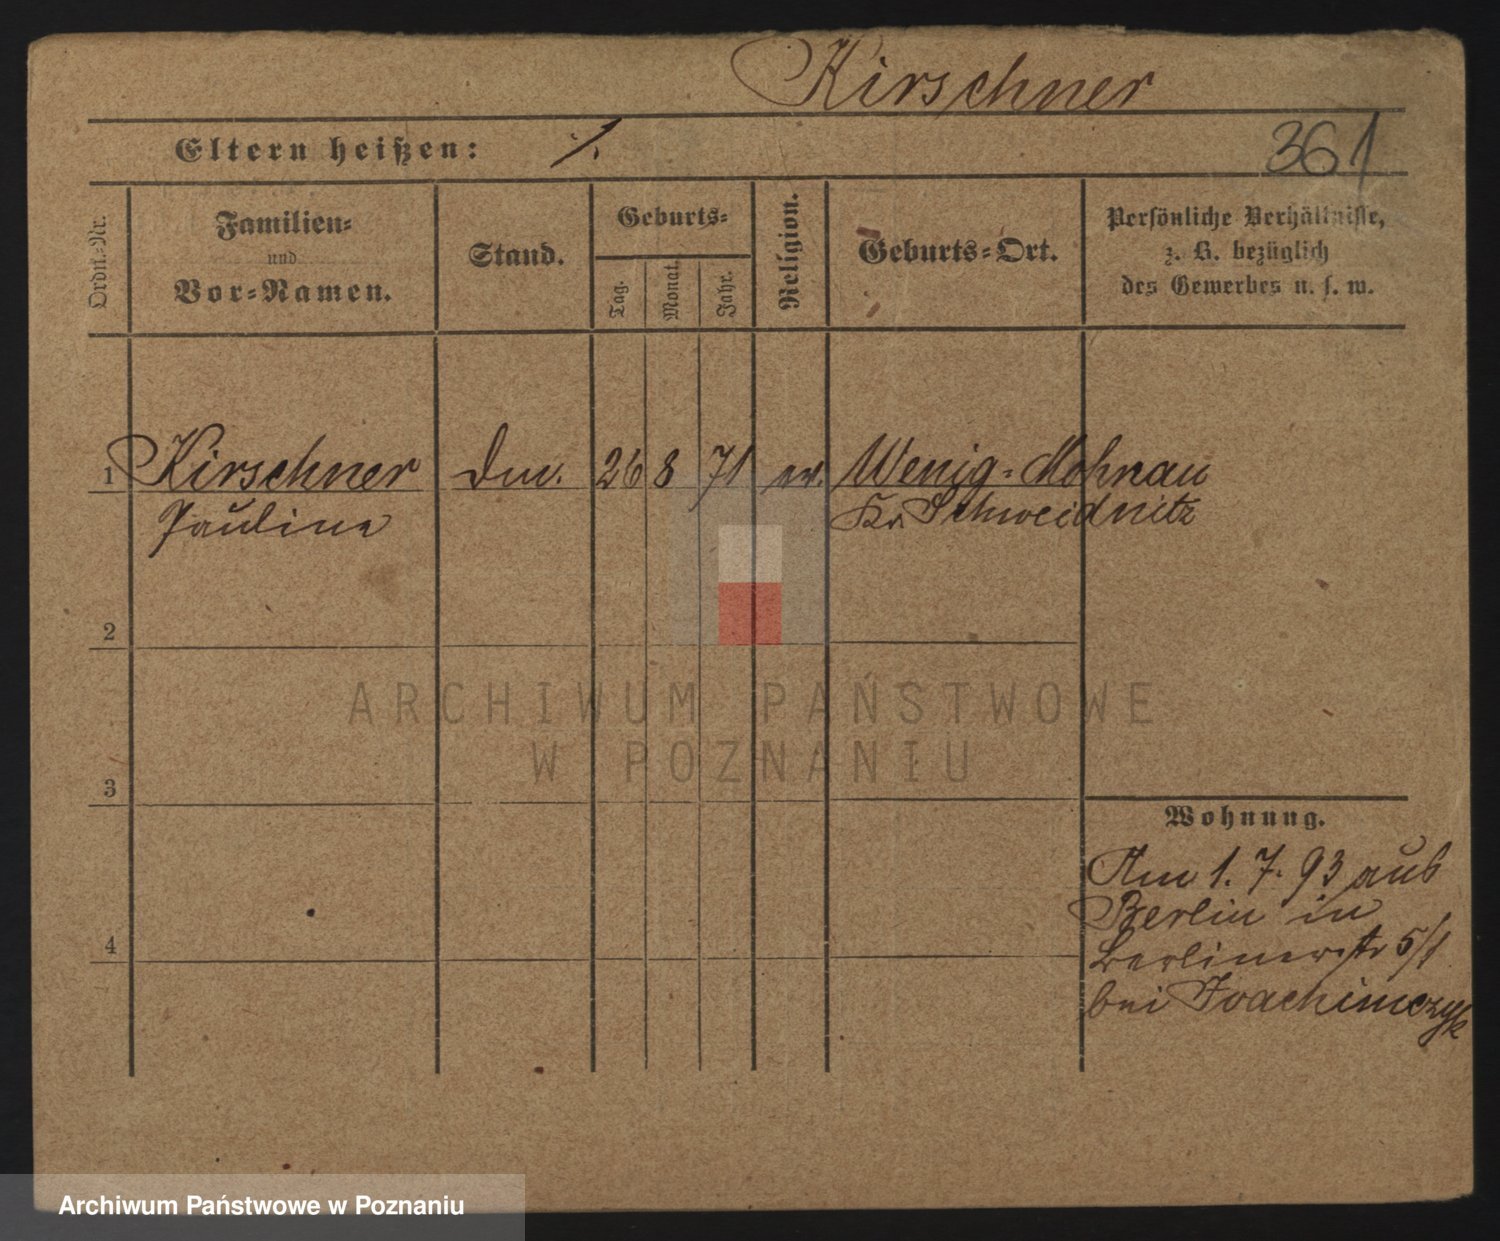 Kirschner
Eltern heißen: ./.
361
Ordn.-Nr.
Familien-
und
Vor-Namen.
Stand.
Geburts-
Tag.
Monat.
Jahr.
Religion.
Geburts-Ort.
Persönliche Verhältnisse,
z. B. bezüglich
des Gewerbes u. s. w.
1 Kirschner 26 8 71 ev. Wenig-Mohnau
Pauline Kr. Schweidnitz
2
3
4
Wohnung.
Am 1. 7. 93 aus
Berlin in
Berlinerstr 5/1
bei Joachimczyk
ARCHIWUM PAŃSTWOWE
W POZNANIU
Archiwum Państwowe w Poznaniu